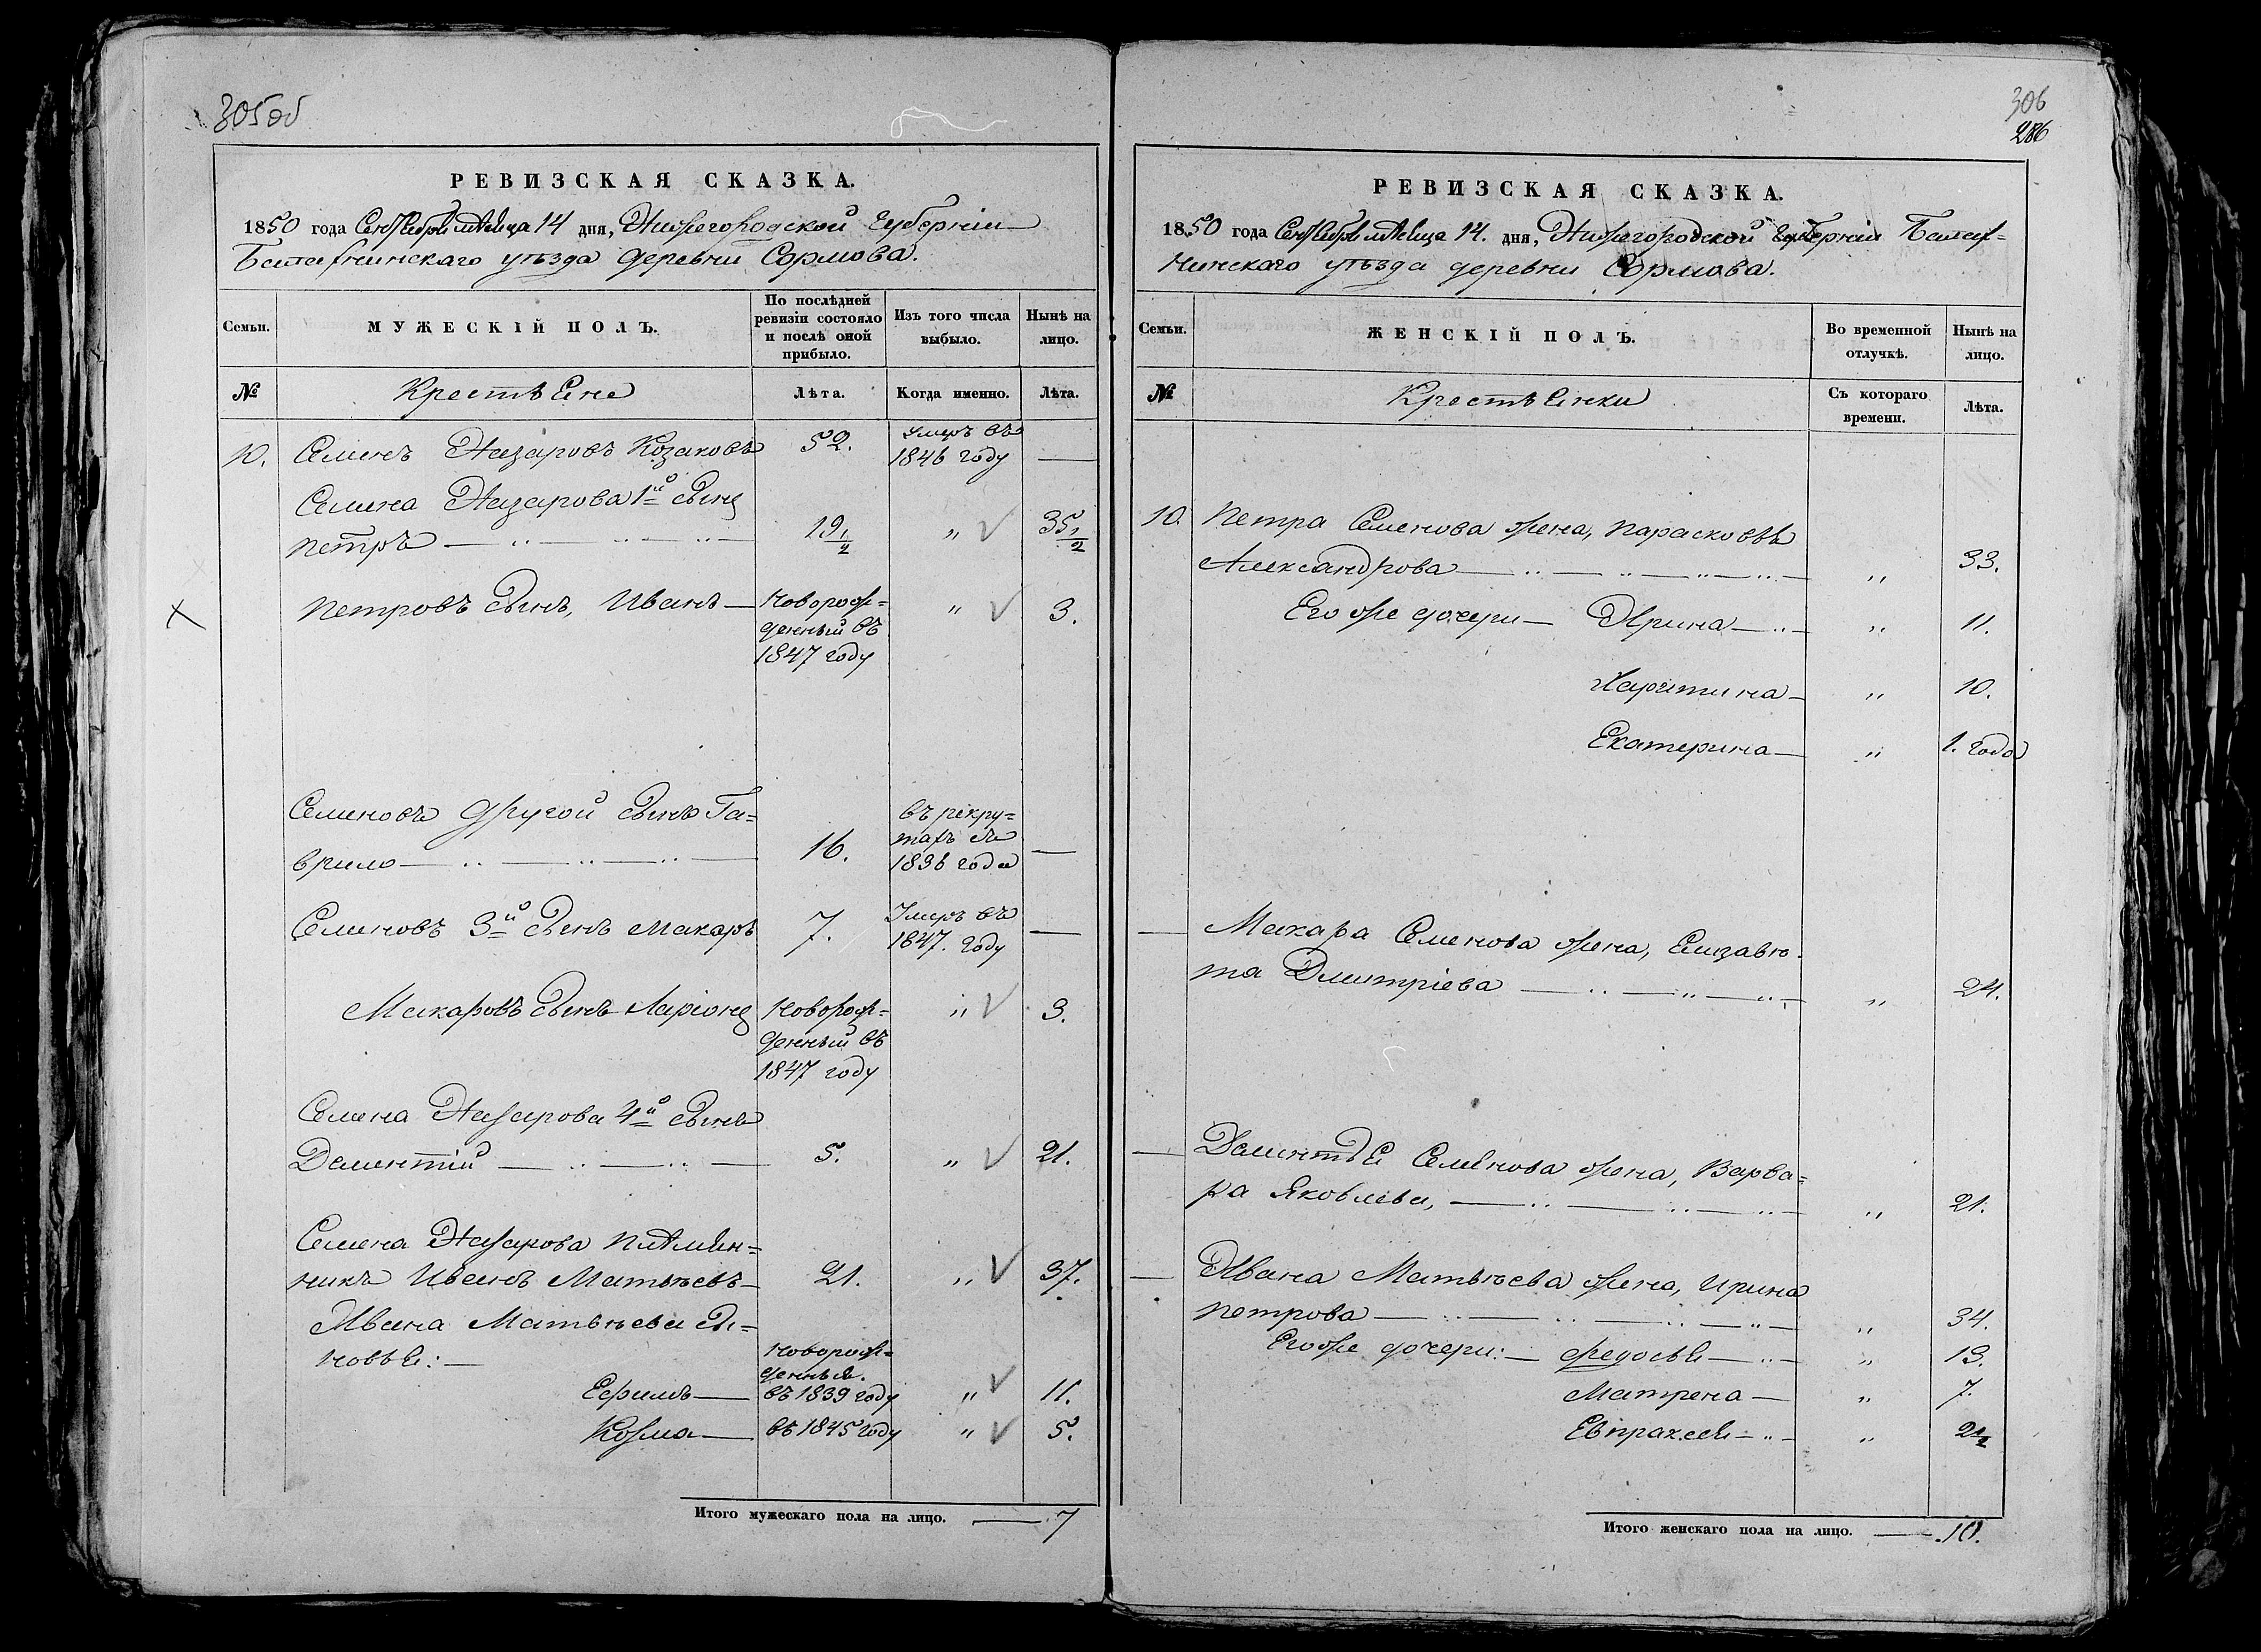 305об
РЕВИЗСКАЯ СКАЗКА.
1850 года Сентября месяца 14 дня, Нижегородской Губернии
Балахнинскаго уѣзда деревни Сормова.
Семьи.
МУЖЕСКІЙ ПОЛЪ.
По послѣдней ревизіи состояло и послѣ оной прибыло.
Изъ того числа выбыло.
Нынѣ на лицо.
№
Крестьяне
Лѣта.
Когда именно.
Лѣта.
10. Семенъ Назаровъ Козаковъ 52. Умеръ въ
1846 году —
Семена Назарова 1й сынъ
Петръ — 19 1/2 „ 35 1/2
Петровъ сынъ, Иванъ — Новорож=
денный въ
1847 году „ 3.
Семеновъ другой сынъ Га=
врило — 16. въ рекру=
тахъ съ
1836 года —
Семеновъ 3й сынъ Макаръ 7. Умеръ въ
1847. году —
Макаровъ сынъ Ларіонъ Новорож=
денный въ
1847 году „ 3.
Семена Назарова 4й сынъ
Дементій — 5. „ 21.
Семена Назарова племян=
никъ Иванъ Матвѣевъ — 21. „ 37.
Ивана Матвѣева сы=
новья: — Новорож=
денныя.
Ефимъ — въ 1839 году „ 11.
Козма — въ 1845 году „ 5.
Итого мужескаго пола на лицо. — 7
306
286
РЕВИЗСКАЯ СКАЗКА.
1850 года Сентября месяца 14. дня, Нижегородской Губерніи Балах=
нинскаго уѣзда деревни Сормова.
Семьи.
ЖЕНСКІЙ ПОЛЪ.
Во временной отлучкѣ.
Нынѣ на лицо.
№
Крестьянки
Съ котораго времени.
Лѣта.
10. Петра Семенова жена, Парасковья
Александрова — „ 33.
Его же дочери — Ирина — „ 11.
Харитина — „ 10.
Екатерина — „ 1. года
— Макара Семенова жена, Елизаве=
та Дмитріева — „ 24.
— Дементья Семенова жена, Варва=
ра Яковлева, — „ 21.
— Ивана Матвѣева жена, Ирина
Петрова — „ 34.
Его же дочери: — Федосья — „ 13.
Матрена — „ 7.
Евпраксея — „ 2 1/2
Итого женскаго пола на лицо. — 10.